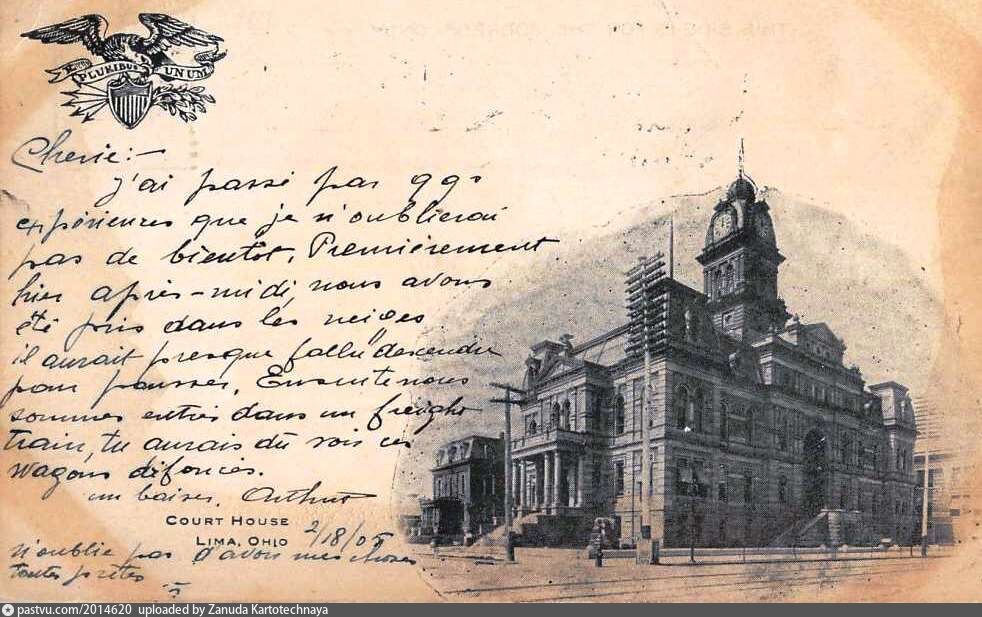 E PLURIBUS UNUM
Cherie:-
j'ai passé par qqs
expériences que je n'oublierai
pas de bientôt. Premièrement
hier après-midi, nous avons
été pris dans les neiges
il aurait presque fallu descendre
pour pousser. Ensuite nous
sommes entrés dans un freight
train, tu aurais dû voir ces
wagons défoncés.
un baiser, Arthur
COURT HOUSE
LIMA, OHIO 2/18/05
n'oublie pas d'avoir mes choses
toutes prêtes
pastvu.com/2014620 uploaded by Zanuda Kartotechnaya